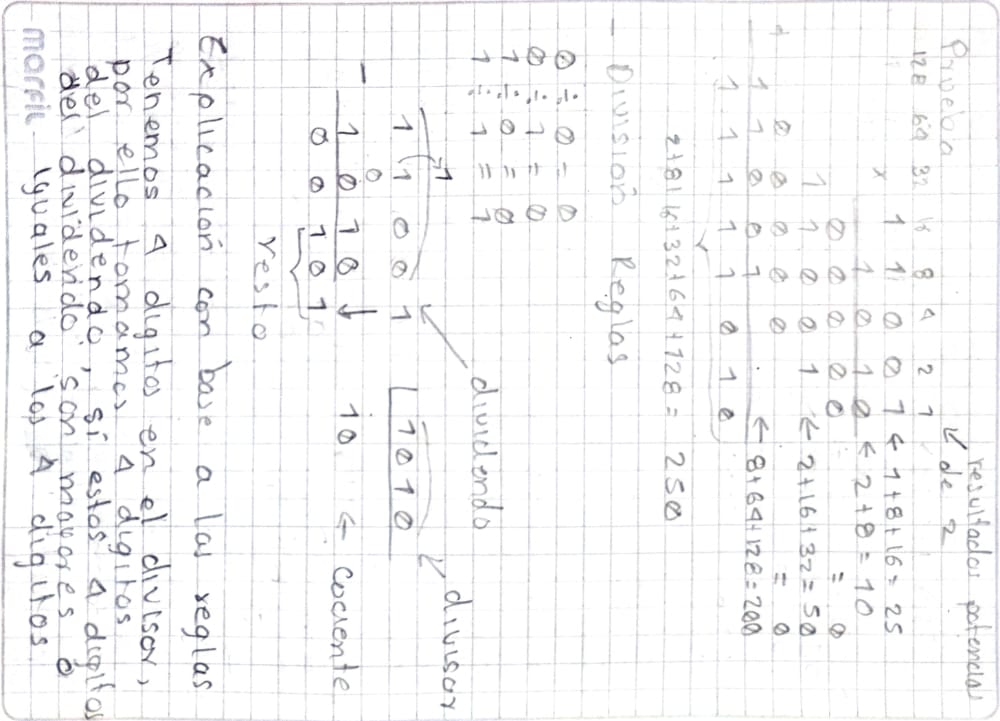 Prueba
resultados potencias
128 64 32 16 8 4 2 1 ↙ de 2
x 1 1 0 0 1 ← 1+8+16 = 25
1 0 1 0 ← 2+8 = 10
0 0 0 0 0 = 0
1 1 0 0 1 ← 2+16+32 = 50
0 0 0 0 0 = 0
+ 1 1 0 0 1 ← 8+64+128 = 200
1 1 1 1 1 0 1 0
2+8+16+32+64+128 = 250
- División Reglas
0 ÷ 0 = 0
0 ÷ 1 = 0
1 ÷ 0 = 0
1 ÷ 1 = 1
dividendo
divisor
1 1 0 0 1 1010
- 1 0 1 0 ↓ 10 ← cociente
0 0 1 0 1
resto
Explicación con base a las reglas
Tenemos 4 digitos en el divisor,
por ello tomamos 4 digitos
del dividendo, si estos 4 digitos
del dividendo son mayores o
marfil iguales a los 4 digitos